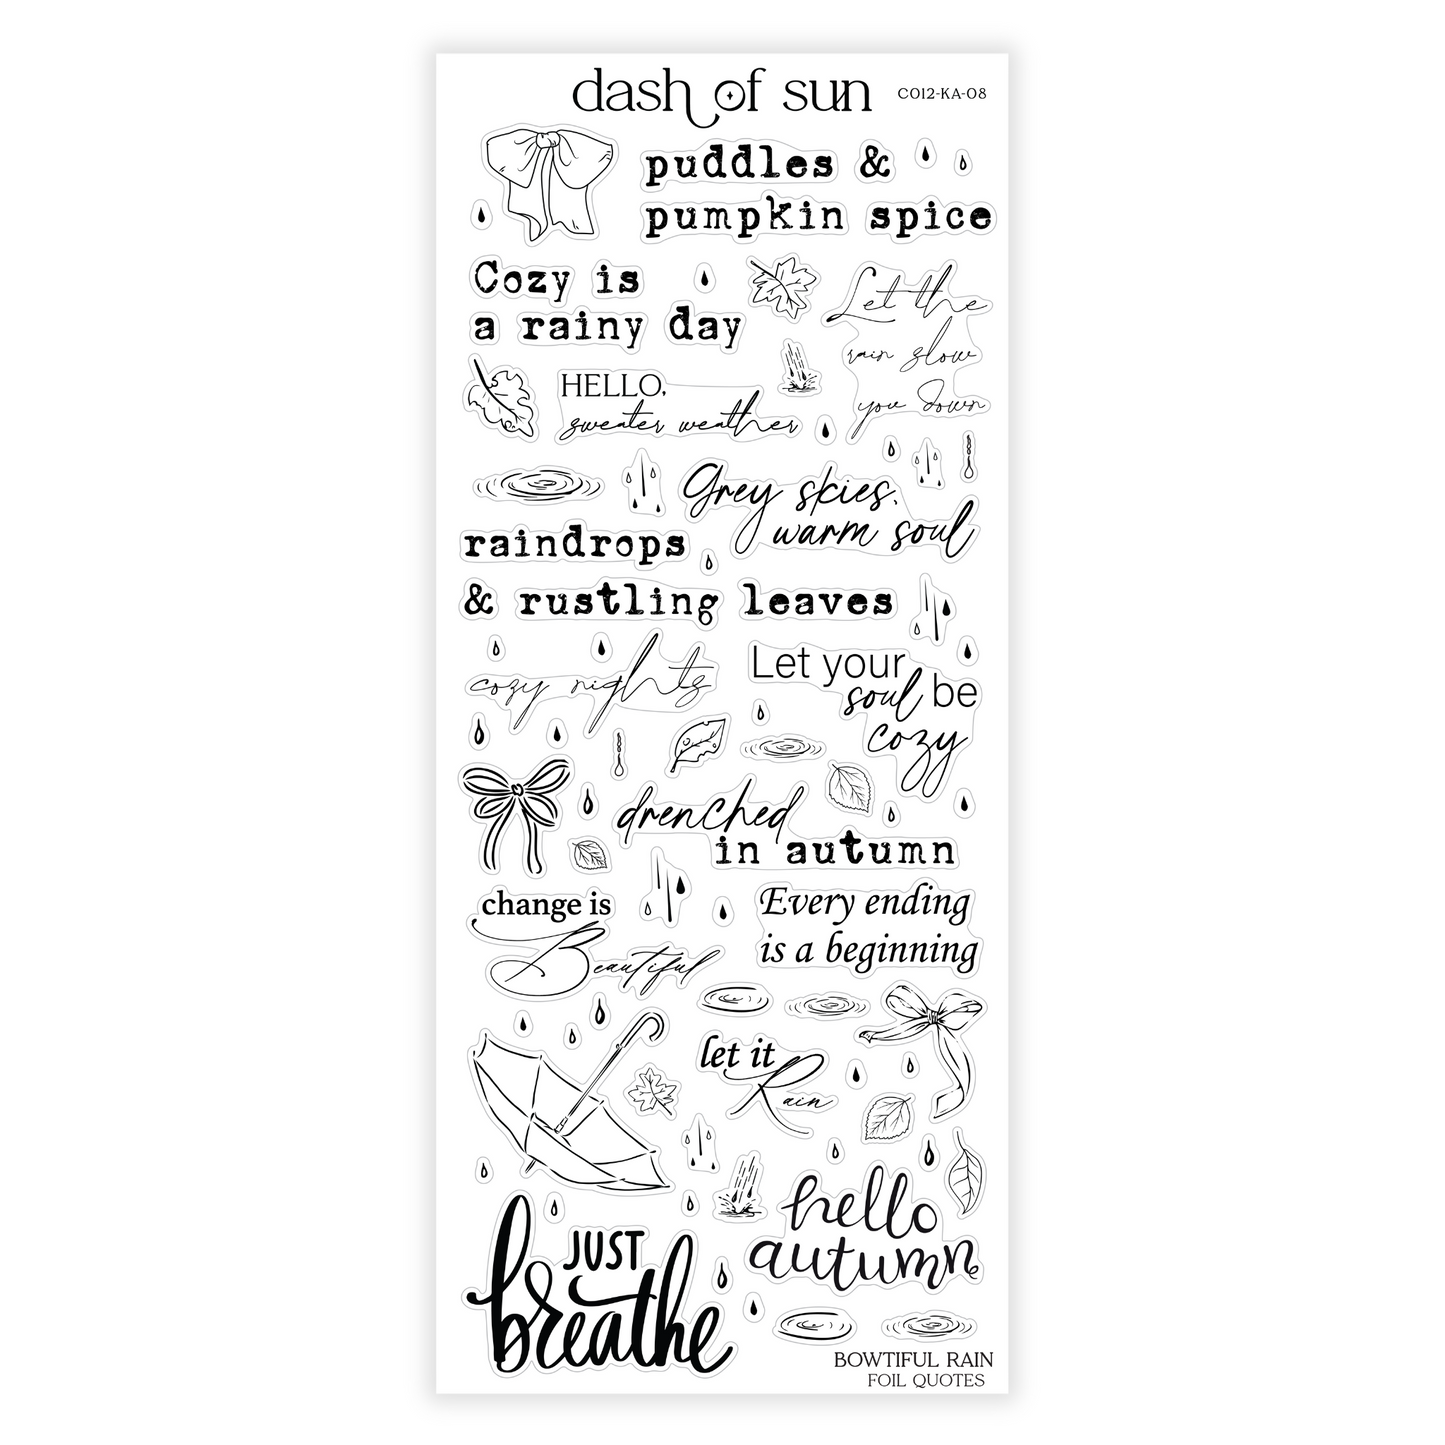 dash of sun
CO12-KA-08
puddles &
pumpkin spice
Cozy is
a rainy day
Let the
rain slow
you down
HELLO,
sweater weather
Grey skies,
warm soul
raindrops
& rustling leaves
cozy nights
Let your
soul be
cozy
drenched
in autumn
change is
Beautiful
Every ending
is a beginning
let it
Rain
hello
autumn
JUST
breathe
BOWTIFUL RAIN
FOIL QUOTES